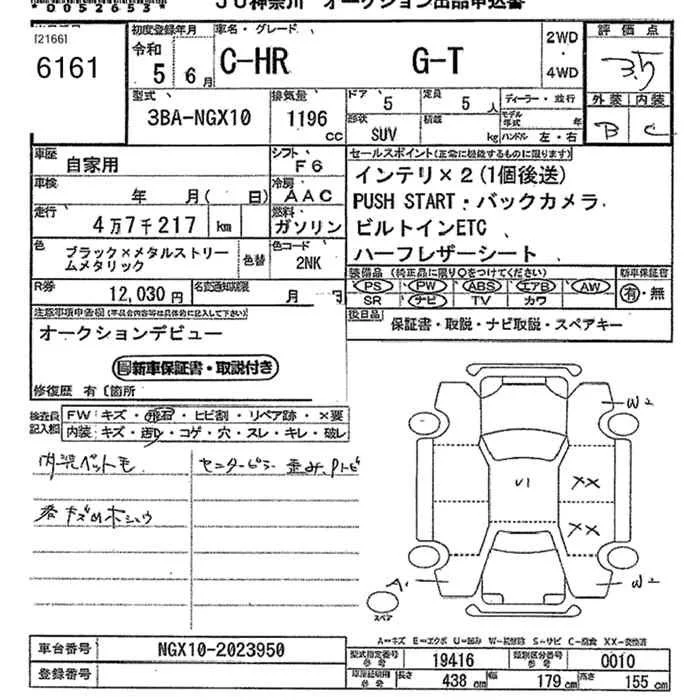 *0052653*
JU神奈川 オークション出品申込書
[2166]
6161
初度登録年月
令和
5 6月
車名・グレード
C-HR G-T
2WD
・
4WD
評価点
3.5
外装 内装
B C
型式
3BA-NGX10
排気量
1196
cc
ドア
5
定員
5
人
形状
SUV
積載
kg
ディーラー・並行
モデル年式
年
ハンドル 左・右
車歴
自家用
シフト
F6
セールスポイント(正常に機能するものに限ります)
インテリ×2(1個後送)
PUSH START・バックカメラ
ビルトインETC
ハーフレザーシート
車検
年 月( 日)
冷房
AAC
走行
4万7千217 km
燃料
ガソリン
色
ブラック×メタルストリームメタリック
色替
色コード
2NK
装備品 (純正品に限り○をつけてください)
PS PW ABS エアB AW
SR ナビ TV カワ
新車保証書
有・無
R券
12,030円
名変通知期限
月 日
後日品
保証書・取説・ナビ取説・スペアキー
注意事項申告欄(不具合内容等は具体的に記入して下さい)
オークションデビュー
新車保証書・取説付き
修復歴 有〔箇所
検査員
記入欄
FW:キズ・飛石・ヒビ割・リペア跡・×要
内装:キズ・汚れ・コゲ・穴・スレ・キレ・破レ
内装ペット毛
センターピラー 歪み、Pトビ
W2
U1
XX
XX
A1
W2
スペア
A=キズ E=エクボ U=凹み W=板跡 S=サビ C=腐食 XX=交換済
車台番号
NGX10-2023950
登録番号
型式指定番号
参考
19416
類別区分番号
参考
0010
参考
長さ
438 cm
幅
179 cm
高さ
155 cm